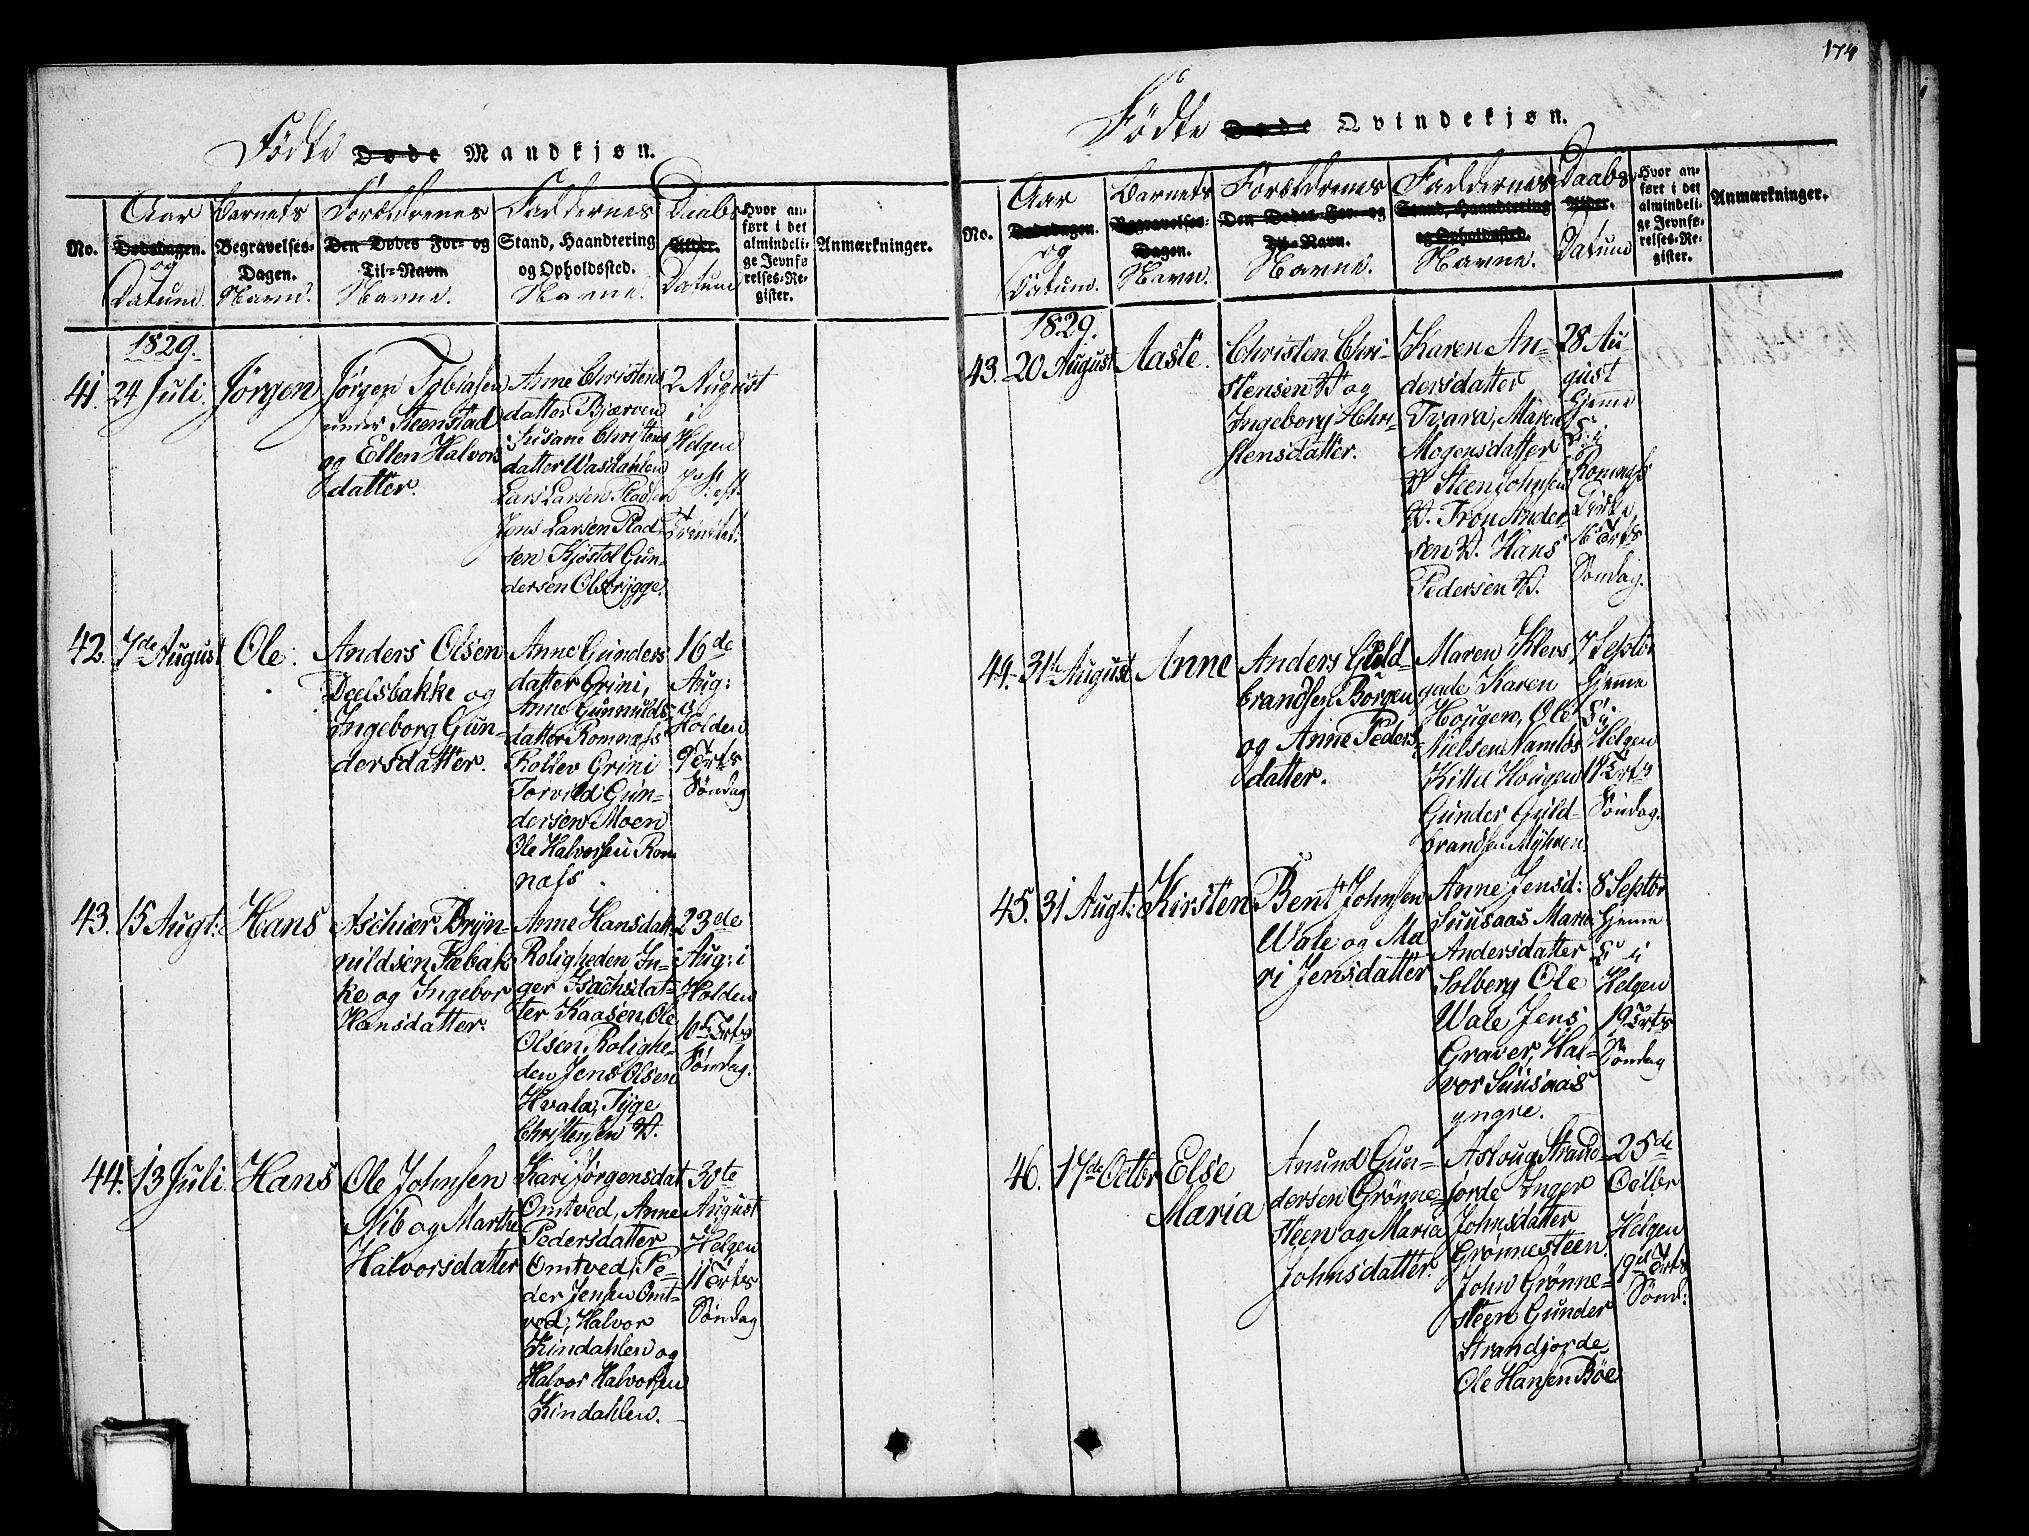 174
Födte Døde Mandkjøn.
No.
Aar
Dødsdagen.
og
Datum.
Barnets
Begravelses-
Dagen.
Navn.
Forældrenes
Den Dødes For- og
Til-Navn
Navne.
Faddernes
Stand, Haandtering
og Opholdssted.
Navne.
Daabs
Alder.
Datum
Hvor an-
ført i det
almindeli-
ge Jevnfø
relses-Re-
gister.
Anmærkninger.
1829.
41.
24 Juli.
Jörgen
Jörgen Tobiasen
under Steenstad
og Ellen Halvors
datter.
Anne Christens
datter Bjærven
Susane Christens
datter Wasdahlen
Lars Larsen Pladsen
Jens Larsen Plad-
sen Kjöstol Gun-
dersen Olsbrygge.
2 August
i
Helgen
7de S: eft
Trinitat:
42.
7de August
Ole.
Anders Olsen
Deelsbakke og
Ingeborg Gun-
dersdatter.
Anne Gunders
datter Grini,
Anne Gunnulds
datter Romnæs
Rollev Grini
Torvild Gun-
dersen Moen
Ole Halvorsen Rom
næs
16de
Aug:
i
Holden
9 Trts
Söndag
43.
15 Augt:
Hans
Aschier Bryn-
nildsen Fæbak
ke og Ingebor
Hansdatter.
Anne Hansdatt:
Roligheden In-
ger Isachsdat-
ter Kaasen, Ole
Olsen Rolighe-
den Jens Olsen
Hvala, Tyge
Christensen V.
23de
Aug: i
Holden
10de Trts
Söndag.
44.
13 Juli
Hans
Ole Johnsen
Nib og Marthe
Halvorsdatter
Kari Jörgensdat
Omtved, Anne
Pedersdatter
Omtved, Pe-
der Jensen Omt-
ved, Halvor
Kindahlen og
Halvor Halvorsen
Kindahlen.
30te
August
i
Helgen
11 Trts
Söndag
Födte Døde Qvindekjøn.
No.
Aar
Dødsdagen.
og
Datum.
Barnets
Begravelses-
Dagen.
Navn.
Forældrenes
Den Dødes For- og
Til-Navn.
Navne.
Faddernes
Stand, Haandtering
og Opholdssted.
Navne.
Daabs
Alder.
Datum
Hvor an-
ført i det
almindeli-
ge Jevnfø-
relses-Re-
gister.
Anmærkninger.
1829.
43.
20 August
Aaste.
Christen Chri-
stensen V og
Ingeborg Chri-
stensdatter.
Karen An-
dersdatter
Tvara, Maren
Mogensdatter
V Steen Johnsen
V. Tron Ander-
sen V. Hans
Pedersen V.
28 Au-
gust
Hjeme
Romnæs
Kirke
16 Trts
Söndag.
44.
31te August
Anne
Anders Guld-
brandsen Borgen
og Anne Peders-
datter.
Maren Klevs
gade Karen
Hougen, Ole
Nielsen Namlös
Kittel Hougen
Gunder Guld-
brandsen Myhren
7 Septbr
Hjeme
i
Helgen
17 Trts
Söndag.
45.
31 Augt:
Kirsten
Bent Johnsen
Wale og Ma
ri Jensdatter
Anne Jensd:
Suusaas Maria
Andersdatter
Solberg Ole
Wale Jens
Graver, Hal-
vor Suusaas
yngre.
8 Septbr
Hjeme
i
Helgen
19 Trts
Söndag
46.
17de Octbr
Else
Maria
Amund Gun-
dersen Grönne-
steen og Maria
Johnsdatter.
Asloug Strand-
jorde Inger
Johnsdatter
Grönnesteen.
John Grönne-
steen Gunder
Strandjorde,
Ole Hansen Böe
25de
Octbr
i
Helgen
19de Trts
Sönd: